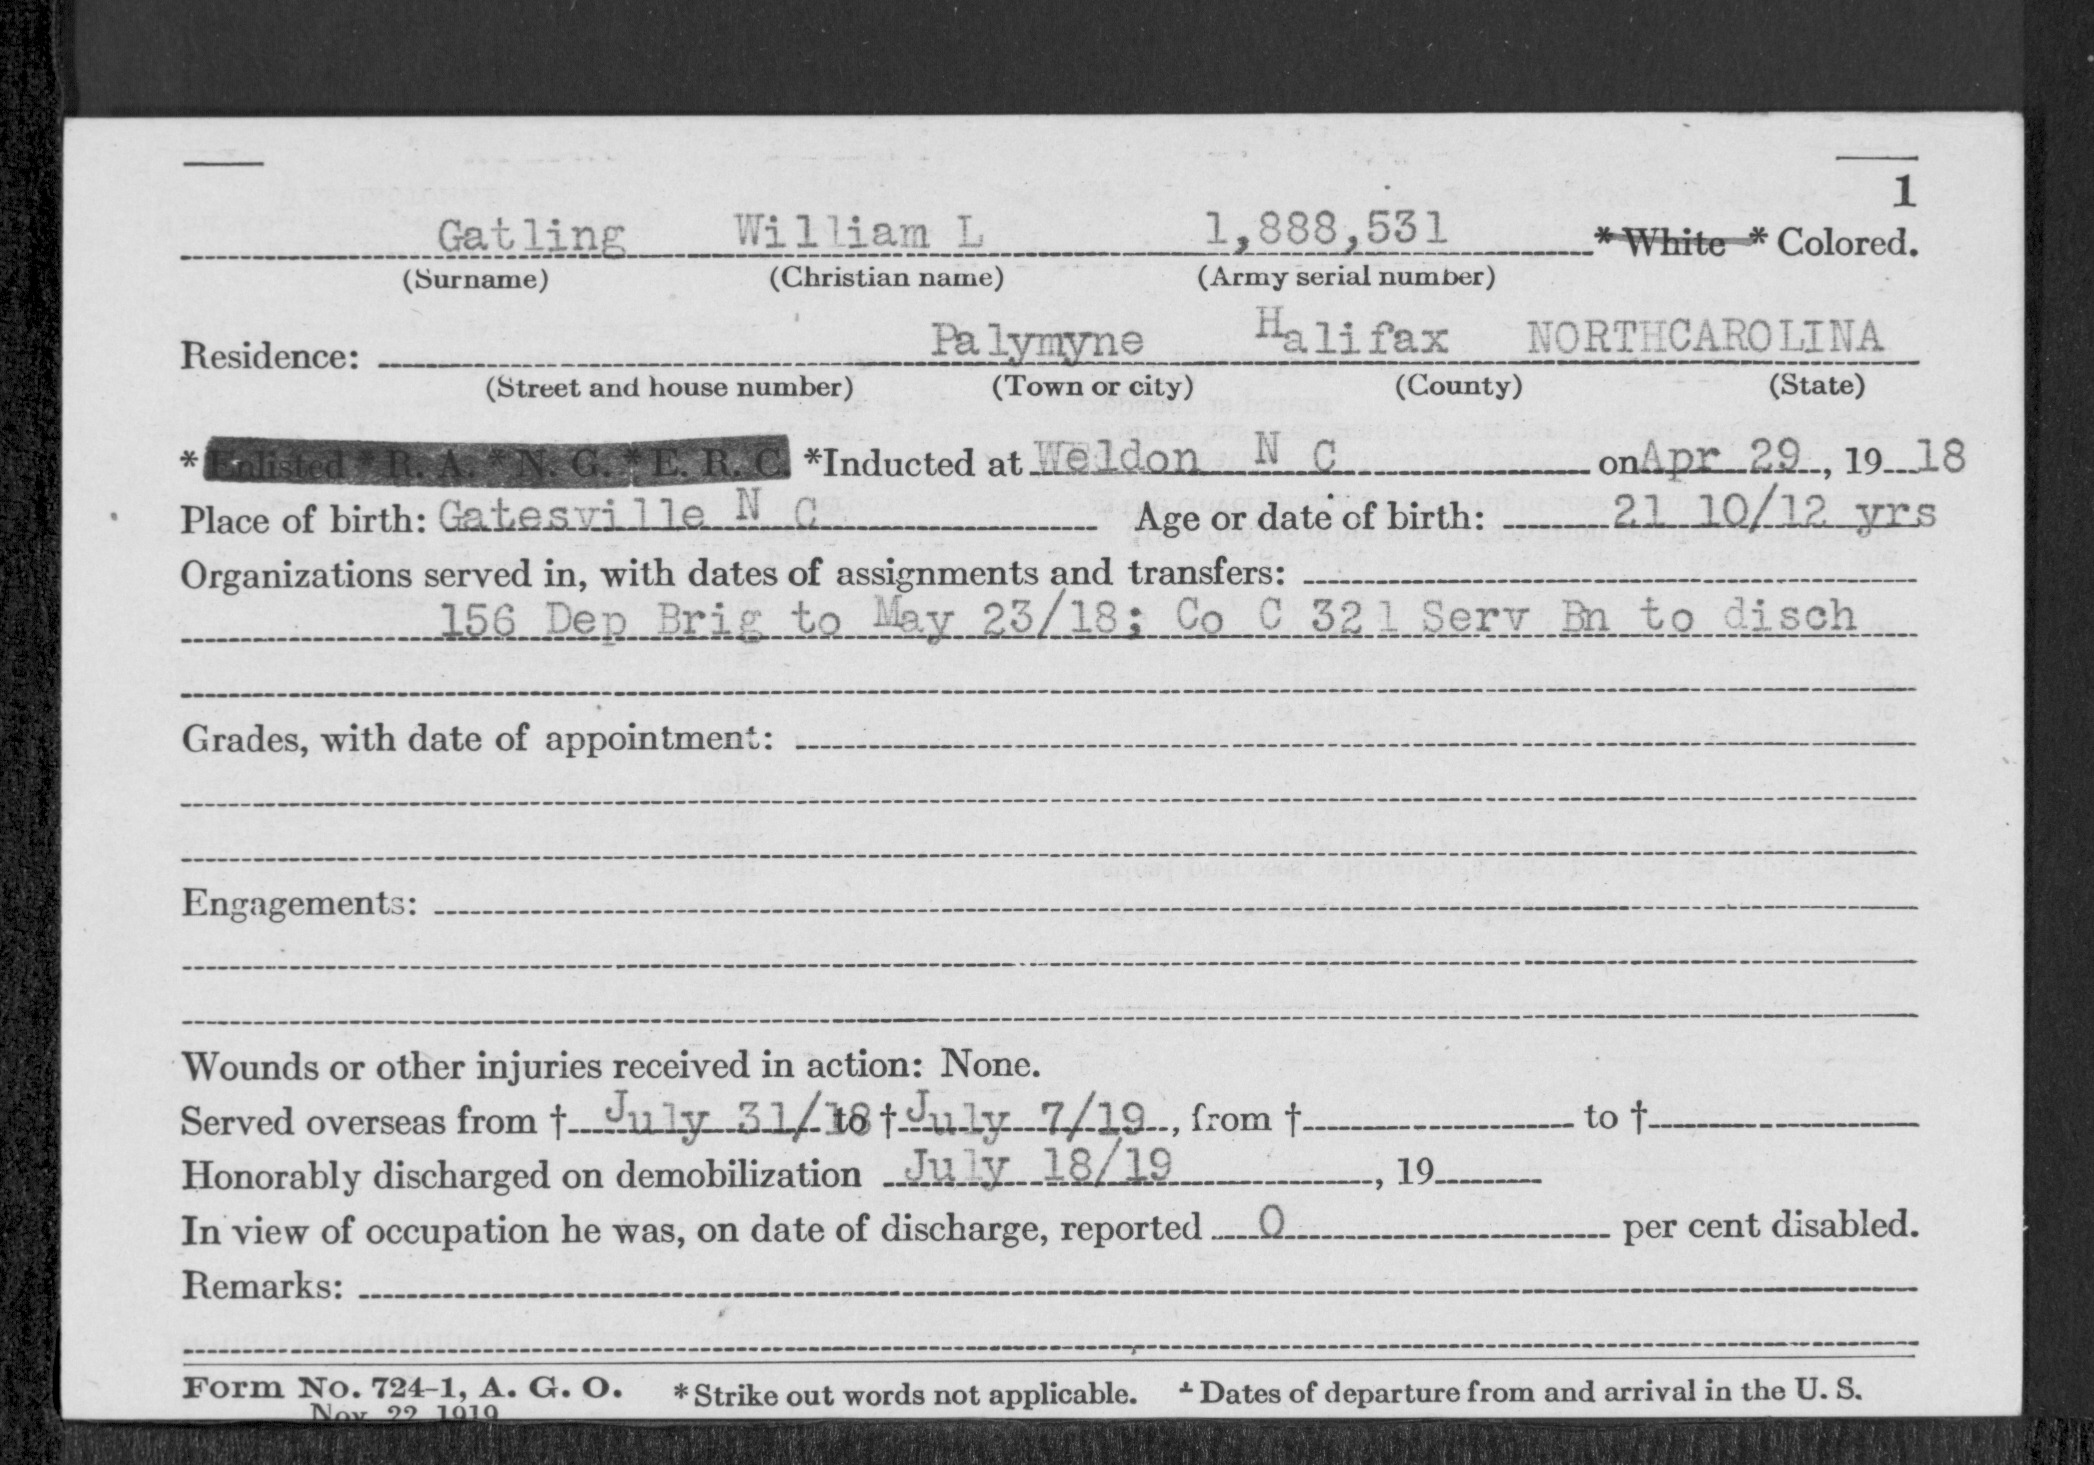 1
Gatling William L 1,888,531 * White * Colored.
(Surname) (Christian name) (Army serial number)
Residence: Palymyne Halifax NORTHCAROLINA
(Street and house number) (Town or city) (County) (State)
* Enlisted * R. A. * N. G. * E. R. C. *Inducted at Weldon N C on Apr 29, 19 18
Place of birth: Gatesville N C Age or date of birth: 21 10/12 yrs
Organizations served in, with dates of assignments and transfers:
156 Dep Brig to May 23/18; Co C 321 Serv Bn to disch
Grades, with date of appointment:
Engagements:
Wounds or other injuries received in action: None.
Served overseas from † July 31/18 to † July 7/19, from † to †
Honorably discharged on demobilization July 18/19, 19
In view of occupation he was, on date of discharge, reported 0 per cent disabled.
Remarks:
Form No. 724-1, A. G. O. * Strike out words not applicable. † Dates of departure from and arrival in the U. S.
Nov. 22, 1919